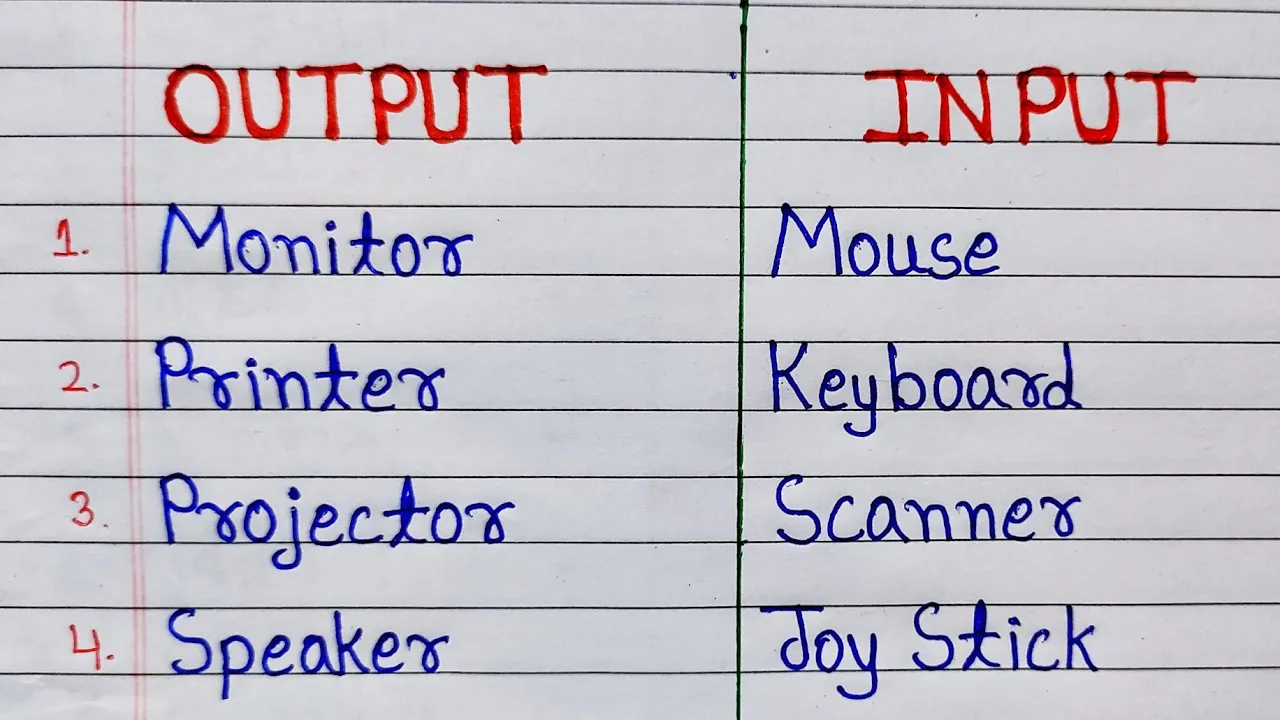 OUTPUT INPUT
1. Monitor Mouse
2. Printer Keyboard
3. Projector Scanner
4. Speaker Joy Stick